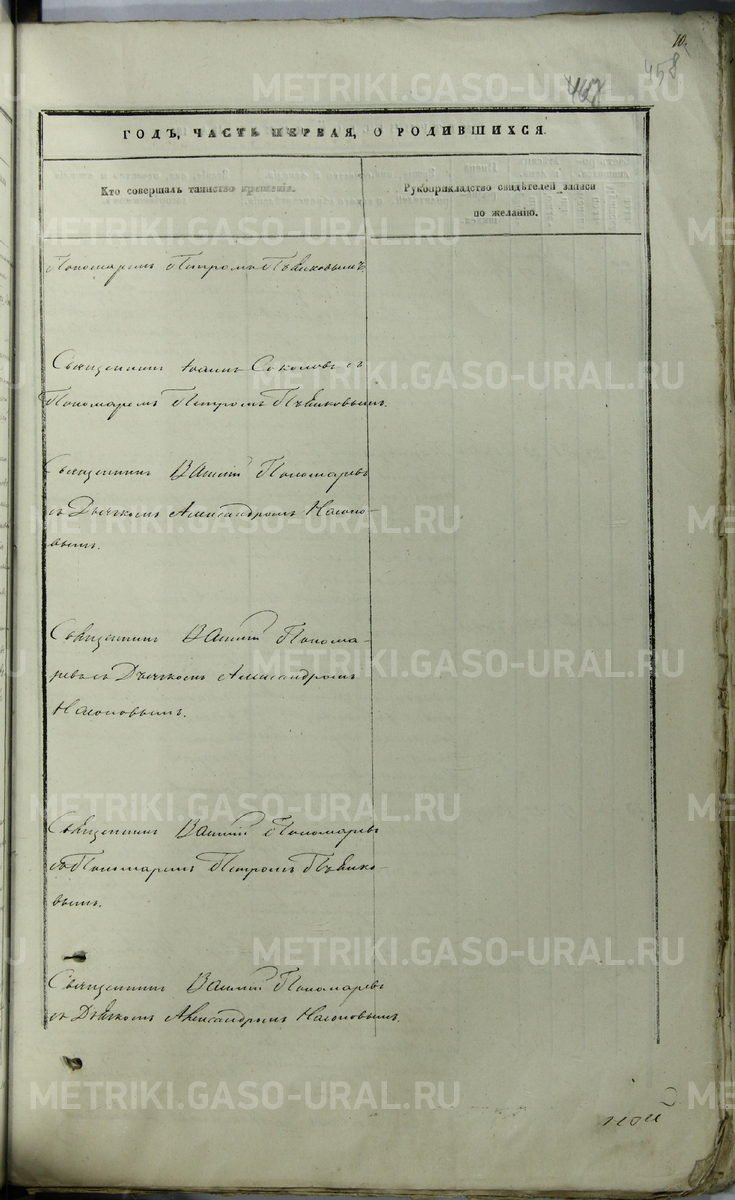 10.
458
467
ГОДЪ, ЧАСТЬ ПЕРВАЯ, О РОДИВШИХСЯ.
Кто совершалъ таинство крещенія.
Рукоприкладство свидѣтелей записи
по желанію.
Пономаремъ Петромъ Пѣвиковымъ
Священникъ Іоаннъ Соколовъ съ
Пономаремъ Петромъ Пѣвиковымъ.
Священникъ Василій Пономаревъ
съ Дьячкомъ Александромъ Насоно-
вымъ.
Священникъ Василій Понома-
ревъ съ Дьячкомъ Александромъ
Насоновымъ.
Священникъ Василій Пономаревъ
съ Пономаремъ Петромъ Пѣвико-
вымъ.
Священникъ Василій Пономаревъ
съ Дьячкомъ Александромъ Насоновымъ.
METRIKI.GASO-URAL.RU